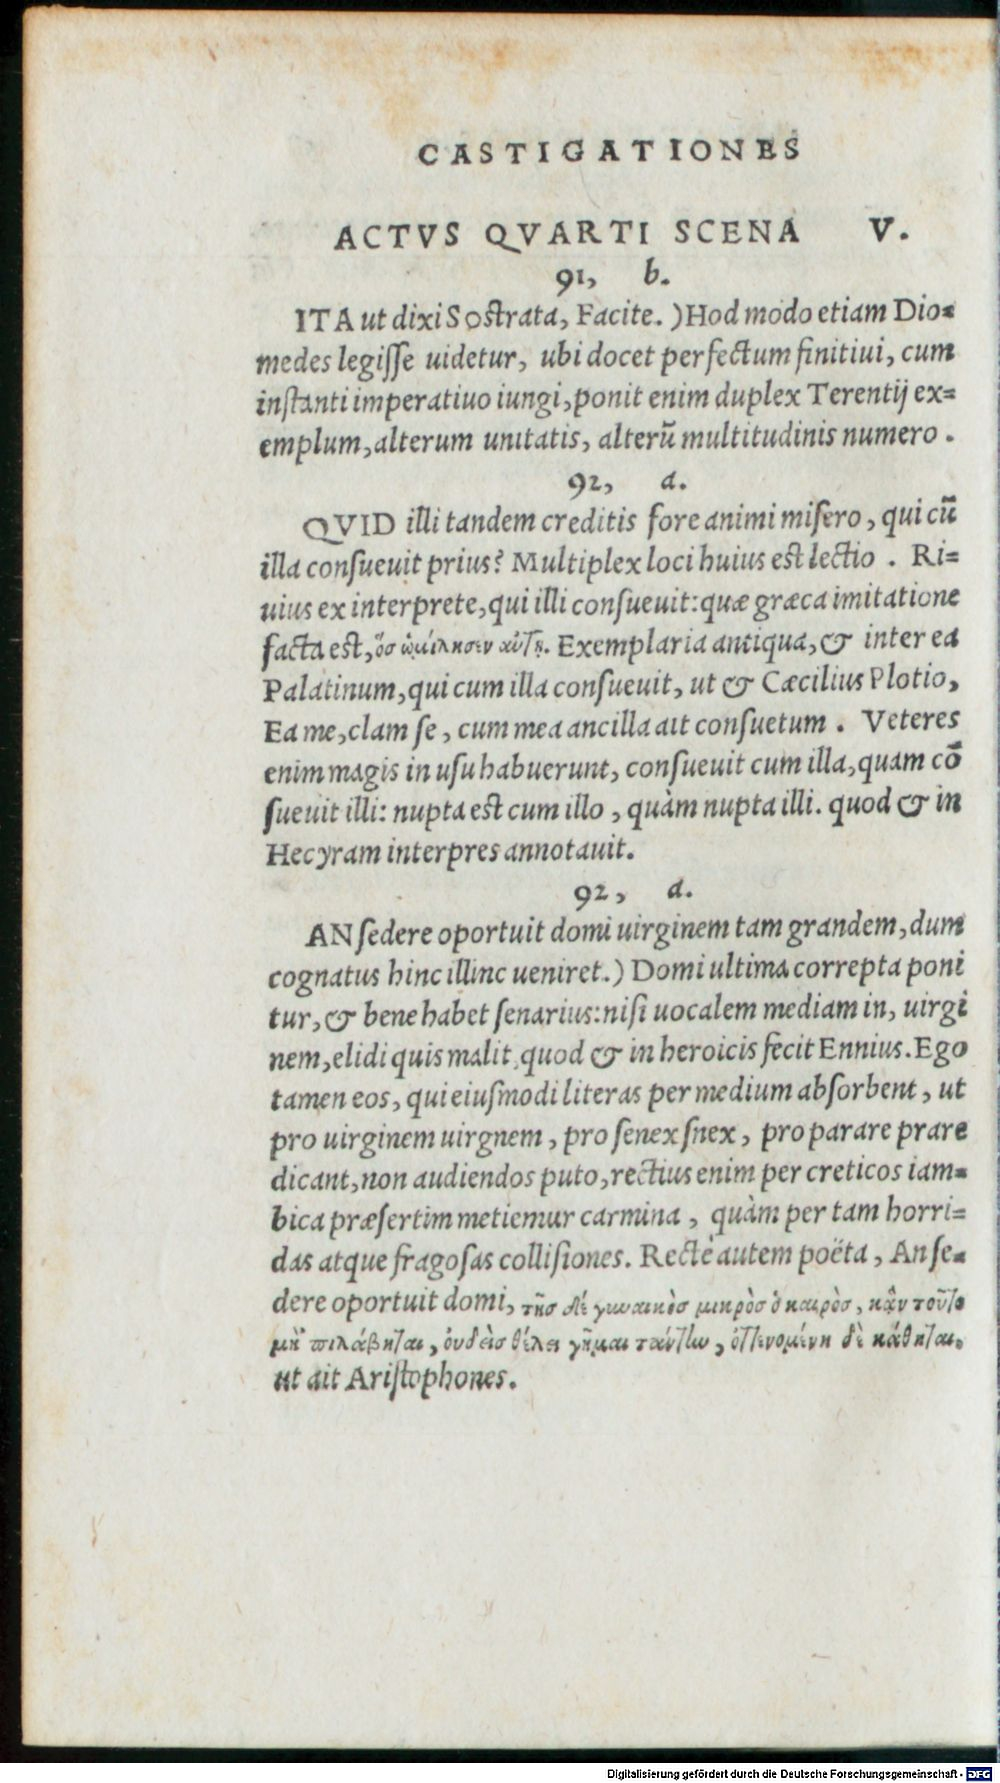 CASTIGATIONES
ACTVS QVARTI SCENA V.
91, b.
ITA ut dixi Sostrata, Facite. ) Hod modo etiam Dio=
medes legiſſe uidetur, ubi docet perfectum finitiui, cum
inſtanti imperatiuo iungi, ponit enim duplex Terentij ex=
emplum, alterum unitatis, alterũ multitudinis numero.
92, a.
QVID illi tandem creditis fore animi miſero, qui cũ
illa conſueuit prius? Multiplex loci huius est lectio. Ri=
uius ex interprete, qui illi conſueuit: quæ græca imitatione
facta est, ὅσ ὡμίλησεν αὐτῇ. Exemplaria antiqua, & inter ea
Palatinum, qui cum illa conſueuit, ut & Cæcilius Plotio,
Ea me, clam ſe, cum mea ancilla ait conſuetum. Veteres
enim magis in uſu habuerunt, conſueuit cum illa, quam cõ
ſueuit illi: nupta est cum illo, quàm nupta illi. quod & in
Hecyram interpres annotauit.
92, a.
AN ſedere oportuit domi uirginem tam grandem, dum
cognatus hinc illinc ueniret.) Domi ultima correpta poni
tur, & bene habet ſenarius: niſi uocalem mediam in, uirgi
nem, elidi quis malit, quod & in heroicis fecit Ennius. Ego
tamen eos, qui eiuſmodi literas per medium abſorbent, ut
pro uirginem uirgnem, pro ſenex ſnex, pro parare prare
dicant, non audiendos puto, rectius enim per creticos iam=
bica præſertim metiemur carmina, quàm per tam horri=
das atque fragoſas colliſiones. Rectè autem poëta, An ſe=
dere oportuit domi, τῆσ δέ γυναικὸσ μικρὸσ ὁ καιρὸσ, κἂν τοῦτο
μὴ ’πιλάβηται, ὀυδεὶσ θέλει γῆμαι ταύτην, ὀττευομένη δὲ κάθηται.
ut ait Ariſtophones.
Digitalisierung gefördert durch die Deutsche Forschungsgemeinschaft - DFG